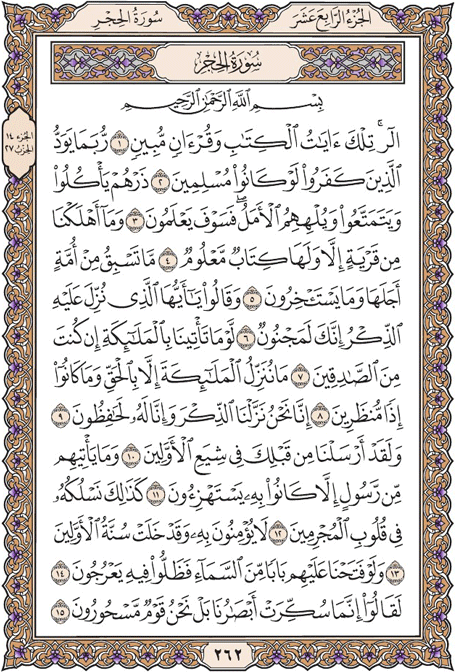 سُورَةُ الحِجْرِ
الجُزْءُ الرَّابِعَ عَشَرَ
سُورَةُ الحِجْرِ
الجزء ١٤
الحزب ٢٧
بِسْمِ ٱللَّهِ ٱلرَّحْمَٰنِ ٱلرَّحِيمِ
الٓر ۚ تِلْكَ ءَايَٰتُ ٱلْكِتَٰبِ وَقُرْءَانٍ مُّبِينٍ ١ رُّبَمَا يَوَدُّ
ٱلَّذِينَ كَفَرُوا۟ لَوْ كَانُوا۟ مُسْلِمِينَ ٢ ذَرْهُمْ يَأْكُلُوا۟
وَيَتَمَتَّعُوا۟ وَيُلْهِهِمُ ٱلْأَمَلُ ۖ فَسَوْفَ يَعْلَمُونَ ٣ وَمَآ أَهْلَكْنَا
مِن قَرْيَةٍ إِلَّا وَلَهَا كِتَابٌ مَّعْلُومٌ ٤ مَّا تَسْبِقُ مِنْ أُمَّةٍ
أَجَلَهَا وَمَا يَسْتَـْٔخِرُونَ ٥ وَقَالُوا۟ يَٰٓأَيُّهَا ٱلَّذِى نُزِّلَ عَلَيْهِ
ٱلذِّكْرُ إِنَّكَ لَمَجْنُونٌ ٦ لَّوْمَا تَأْتِينَا بِٱلْمَلَٰٓئِكَةِ إِن كُنتَ
مِنَ ٱلصَّٰدِقِينَ ٧ مَا نُنَزِّلُ ٱلْمَلَٰٓئِكَةَ إِلَّا بِٱلْحَقِّ وَمَا كَانُوٓا۟
إِذًا مُّنظَرِينَ ٨ إِنَّا نَحْنُ نَزَّلْنَا ٱلذِّكْرَ وَإِنَّا لَهُۥ لَحَٰفِظُونَ ٩
وَلَقَدْ أَرْسَلْنَا مِن قَبْلِكَ فِى شِيَعِ ٱلْأَوَّلِينَ ١٠ وَمَا يَأْتِيهِم
مِّن رَّسُولٍ إِلَّا كَانُوا۟ بِهِۦ يَسْتَهْزِءُونَ ١١ كَذَٰلِكَ نَسْلُكُهُۥ
فِى قُلُوبِ ٱلْمُجْرِمِينَ ١٢ لَا يُؤْمِنُونَ بِهِۦ وَقَدْ خَلَتْ سُنَّةُ ٱلْأَوَّلِينَ
١٣ وَلَوْ فَتَحْنَا عَلَيْهِم بَابًا مِّنَ ٱلسَّمَآءِ فَظَلُّوا۟ فِيهِ يَعْرُجُونَ ١٤
لَقَالُوٓا۟ إِنَّمَا سُكِّرَتْ أَبْصَٰرُنَا بَلْ نَحْنُ قَوْمٌ مَّسْحُورُونَ ١٥
٢٦٢